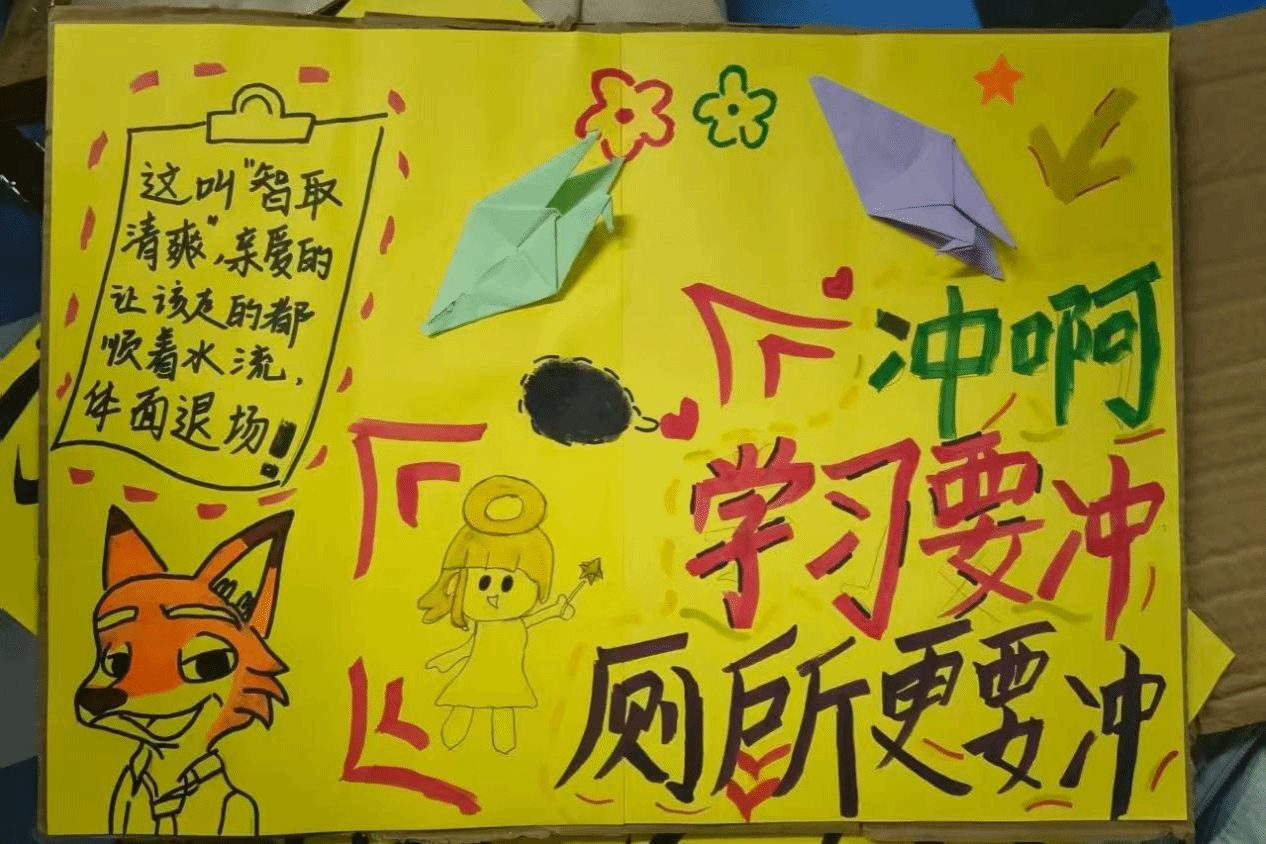 这叫"智取
清爽",亲爱的
让该走的都
顺着水流,
体面退场!
冲啊
学习要冲
厕所更要冲